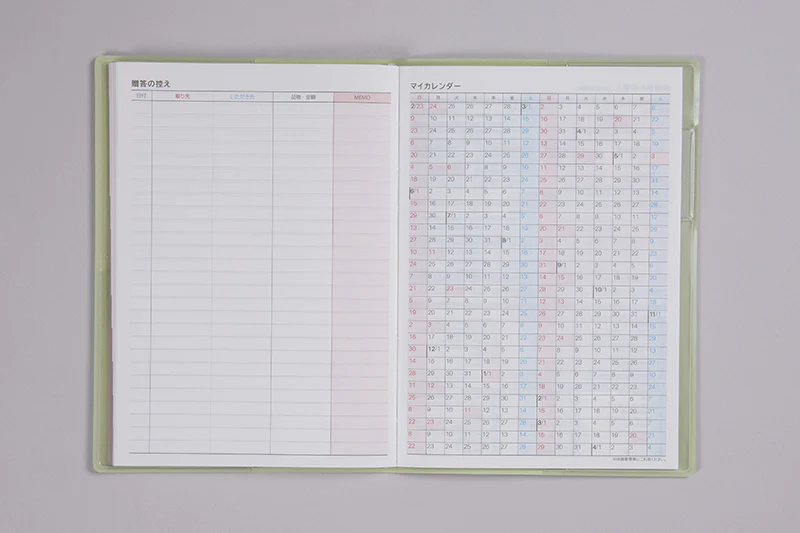 贈答の控え
日付 贈り先 いただき先 品物・金額 MEMO
マイカレンダー
日 月 火 水 木 金 土 日 月 火 水 木 金 土
2/23 24 25 26 27 28 3/1 2 3 4 5 6 7 8
9 10 11 12 13 14 15 16 17 18 19 20 21 22
23 24 25 26 27 28 29 30 31 4/1 2 3 4 5
6 7 8 9 10 11 12 13 14 15 16 17 18 19
20 21 22 23 24 25 26 27 28 29 30 5/1 2 3
4 5 6 7 8 9 10 11 12 13 14 15 16 17
18 19 20 21 22 23 24 25 26 27 28 29 30 31
6/1 2 3 4 5 6 7 8 9 10 11 12 13 14
15 16 17 18 19 20 21 22 23 24 25 26 27 28
29 30 7/1 2 3 4 5 6 7 8 9 10 11 12
13 14 15 16 17 18 19 20 21 22 23 24 25 26
27 28 29 30 31 8/1 2 3 4 5 6 7 8 9
10 11 12 13 14 15 16 17 18 19 20 21 22 23
24 25 26 27 28 29 30 31 9/1 2 3 4 5 6
7 8 9 10 11 12 13 14 15 16 17 18 19 20
21 22 23 24 25 26 27 28 29 30 10/1 2 3 4
5 6 7 8 9 10 11 12 13 14 15 16 17 18
19 20 21 22 23 24 25 26 27 28 29 30 31 11/1
2 3 4 5 6 7 8 9 10 11 12 13 14 15
16 17 18 19 20 21 22 23 24 25 26 27 28 29
30 12/1 2 3 4 5 6 7 8 9 10 11 12 13
14 15 16 17 18 19 20 21 22 23 24 25 26 27
28 29 30 31 1/1 2 3 4 5 6 7 8 9 10
11 12 13 14 15 16 17 18 19 20 21 22 23 24
25 26 27 28 29 30 31 2/1 2 3 4 5 6 7
8 9 10 11 12 13 14 15 16 17 18 19 20 21
22 23 24 25 26 27 28 3/1 2 3 4 5 6 7
8 9 10 11 12 13 14 15 16 17 18 19 20 21
22 23 24 25 26 27 28 29 30 31 4/1 2 3 4